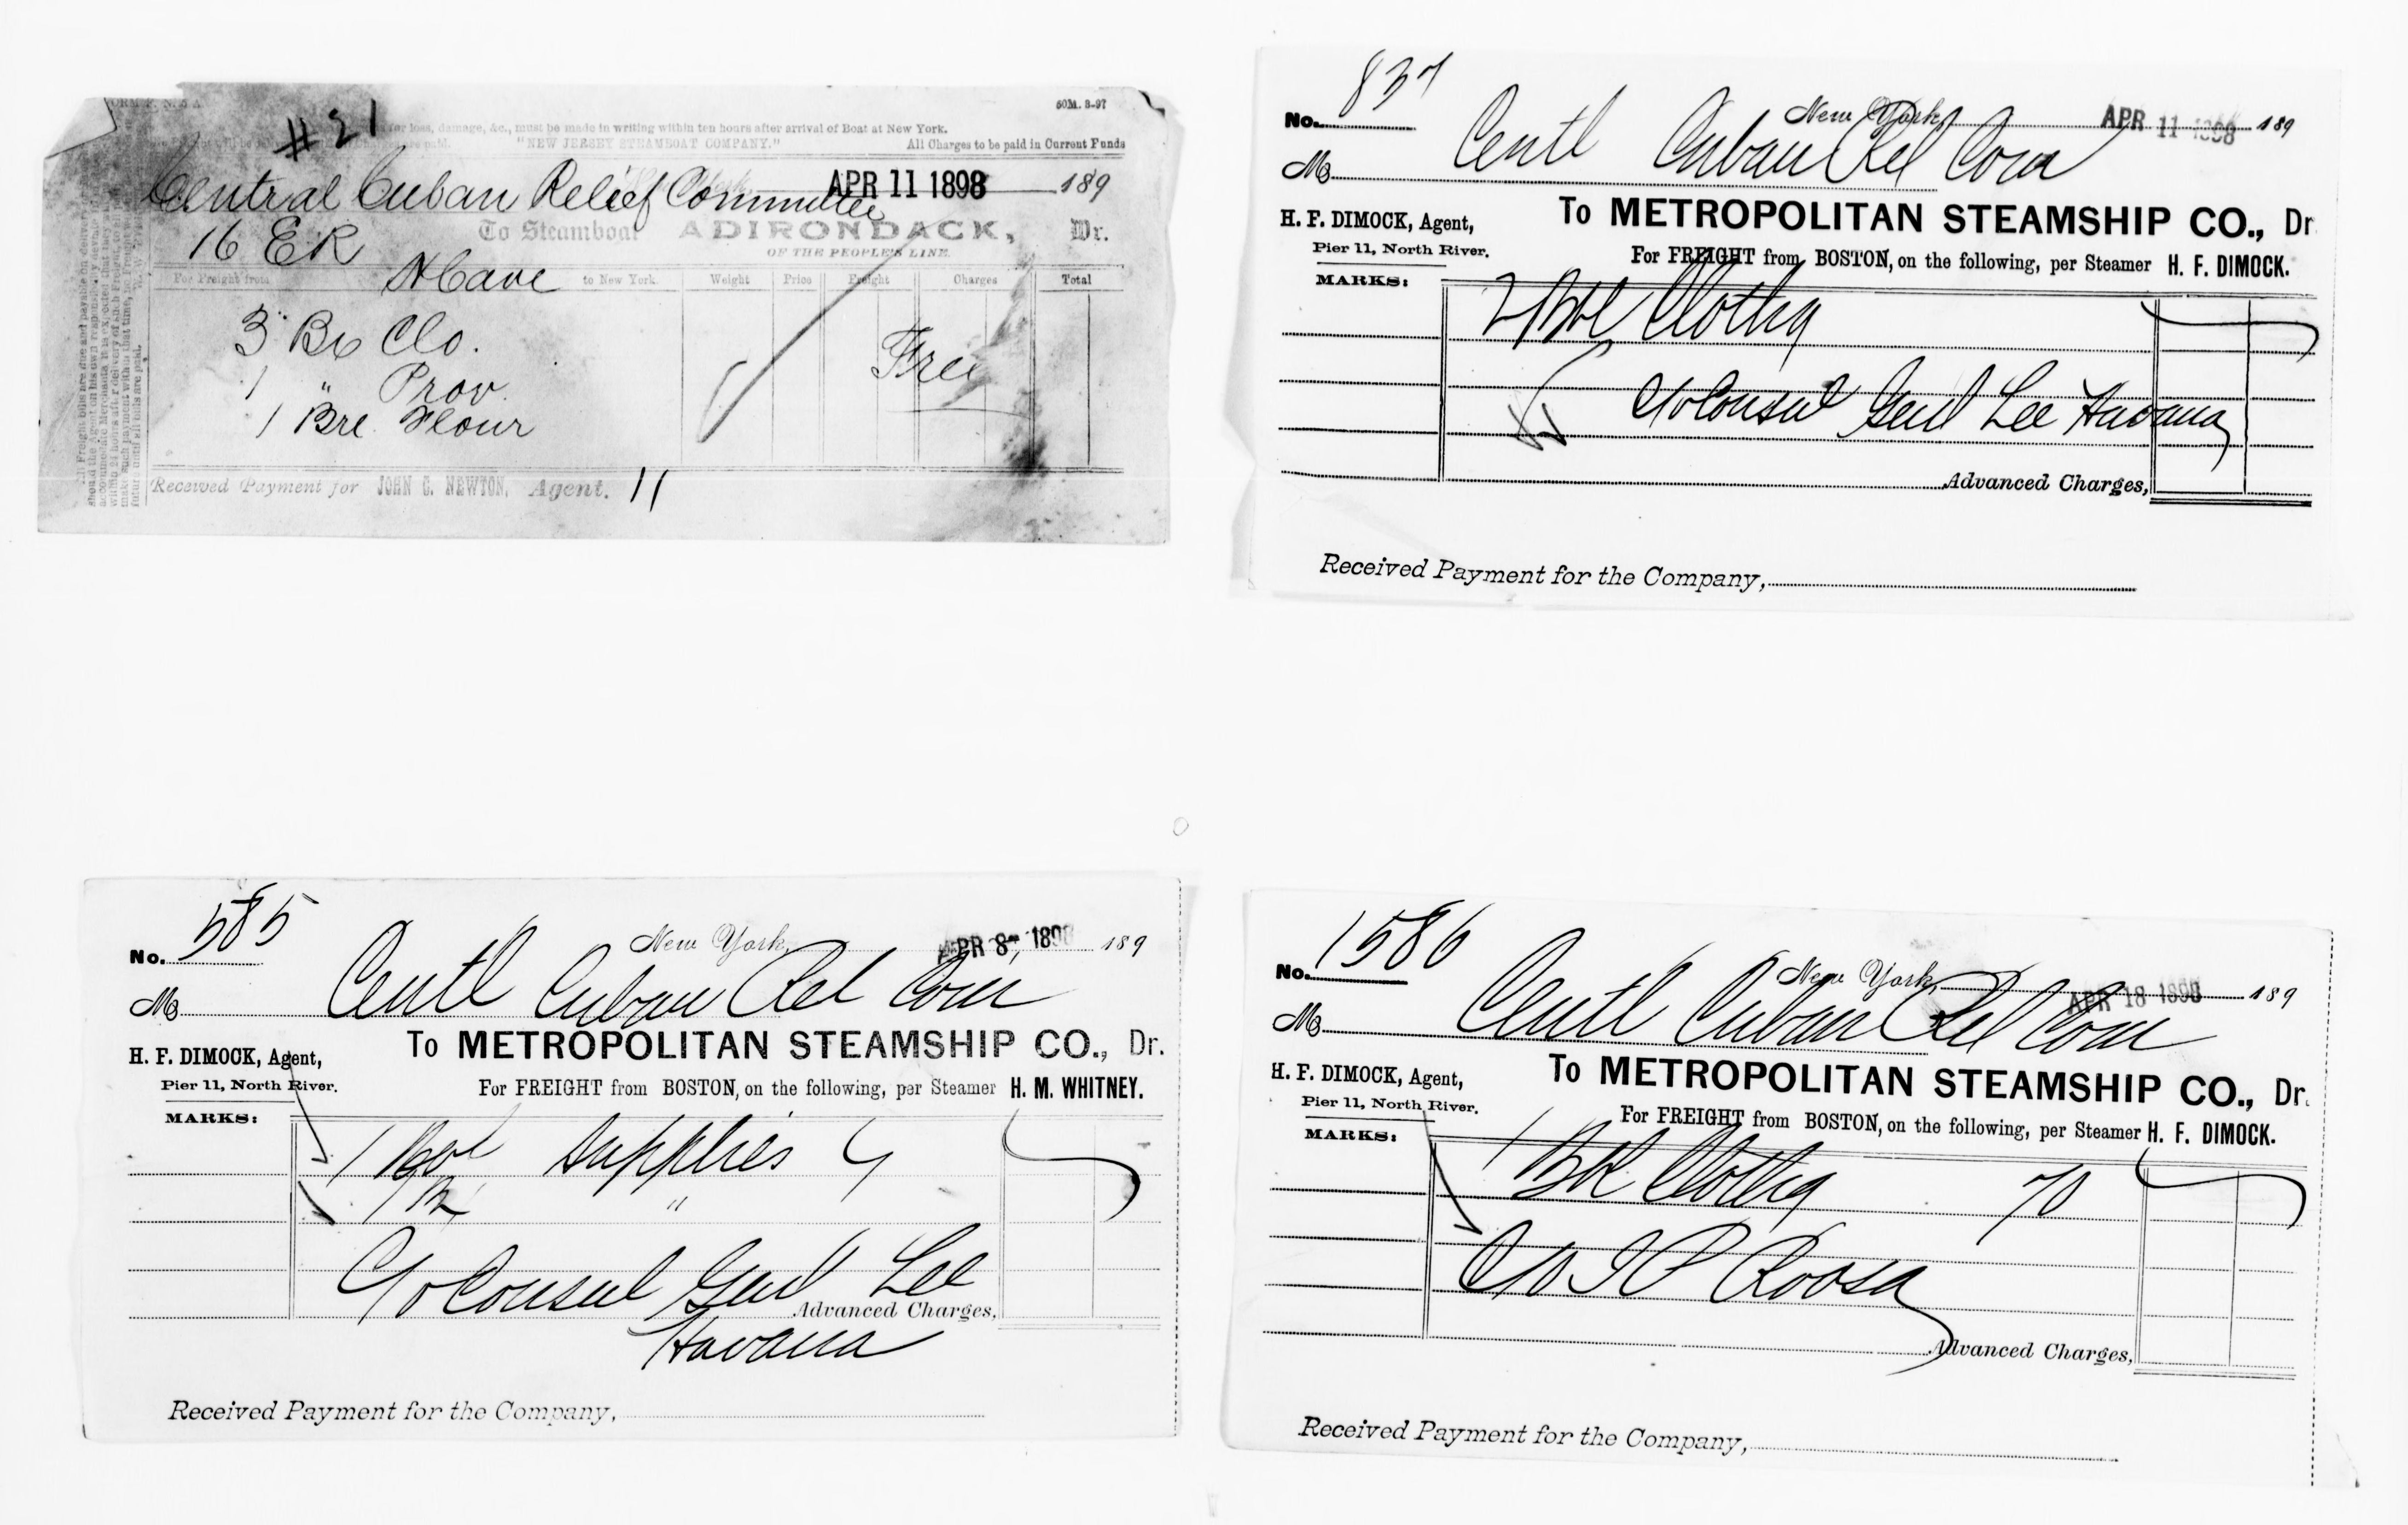 #21
60M. 8-97
for loss, damage, &c., must be made in writing within ten hours after arrival of Boat at New York.
"NEW JERSEY STEAMBOAT COMPANY." All Charges to be paid in Current Funds
Central Cuban Relief Committee APR 11 1898 189
16 ER To Steamboat ADIRONDACK, Dr.
OF THE PEOPLE'S LINE.
For Freight from to New York. Weight Price Freight Charges Total
3 Bx Clo. Free
1 " Prov.
1 Bre. Flour
Received Payment for JOHN C. NEWTON, Agent. 11
No. 837 New York, APR 11 1898 189
M Centl Cuban Rel Com
H. F. DIMOCK, Agent, To METROPOLITAN STEAMSHIP CO., Dr
Pier 11, North River. For FREIGHT from BOSTON, on the following, per Steamer H. F. DIMOCK.
MARKS:
2 Bbl Clothg
c/o Consul Genl Lee Havana
Advanced Charges,
Received Payment for the Company,
No. 585 New York, APR 8- 1898 189
M Centl Cuban Rel Com
H. F. DIMOCK, Agent, To METROPOLITAN STEAMSHIP CO., Dr.
Pier 11, North River. For FREIGHT from BOSTON, on the following, per Steamer H. M. WHITNEY.
MARKS:
1 Bbl Supplies
1 Bx "
c/o Consul Genl Lee
Advanced Charges,
Havana
Received Payment for the Company,
No. 1586 New York, APR 18 1898 189
M Centl Cuban Rel Com
H. F. DIMOCK, Agent, To METROPOLITAN STEAMSHIP CO., Dr.
Pier 11, North River. For FREIGHT from BOSTON, on the following, per Steamer H. F. DIMOCK.
MARKS:
1 Bbl Clothg 70
c/o I P Roosa
Advanced Charges,
Received Payment for the Company,